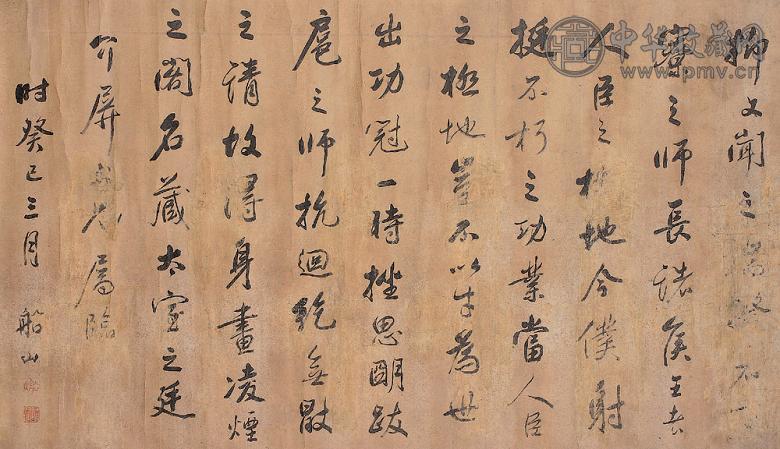 抑又聞之端揆
寮之師長諸侯王者
人臣之極地今僕射
挺不朽之功業當人臣
之極地豈不以才為世
出功冠一時挫思朙跋
扈之師抗迴紇無猒
之請故得身畫凌煙
之閣名藏太室之廷
介屏兄屬臨
时癸巳三月 船山
中华收藏网
www.pmv.cn